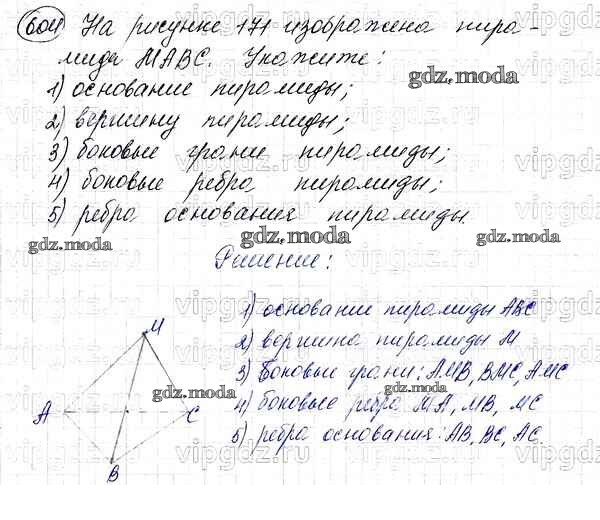 604 На рисунке 171 изображена пира-
мида МАВС. Укажите:
1) основание пирамиды;
2) вершину пирамиды;
3) боковые грани пирамиды;
4) боковые ребра пирамиды;
5) ребра основания пирамиды.
gdz.moda
gdz.moda
gdz.moda
gdz.moda
Решение:
1) основание пирамиды АВС
2) вершина пирамиды М
3) боковые грани: АМВ, ВМС, АМС
4) боковые ребра МА, МВ, МС
5) ребра основания: АВ, ВС, АС.
gdz.moda
gdz.moda
М
А
С
В
vipgdz.ru